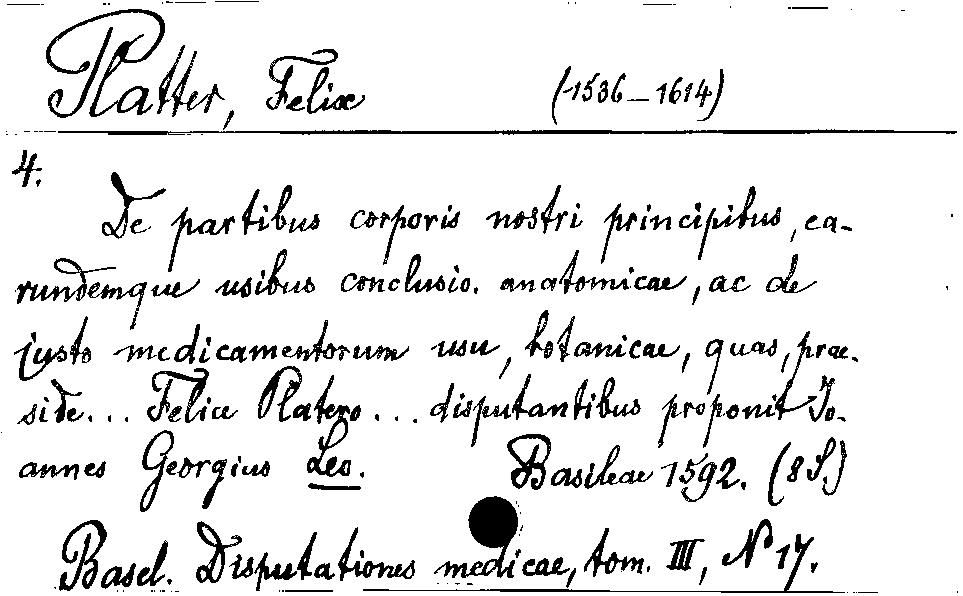 Platter, Felix (1536–1614)
4.
De partibus corporis nostri principibus, ea-
rundemque usibus conclusio. anatomicae, ac de
justo medicamentorum usu, botanicae, quas, prae-
side... Felice Platero... disputantibus proponit Jo-
annes Georgius Leo. Basileae 1592. (8 S.)
Basel. Disputationes medicae, tom. III, N° 17.